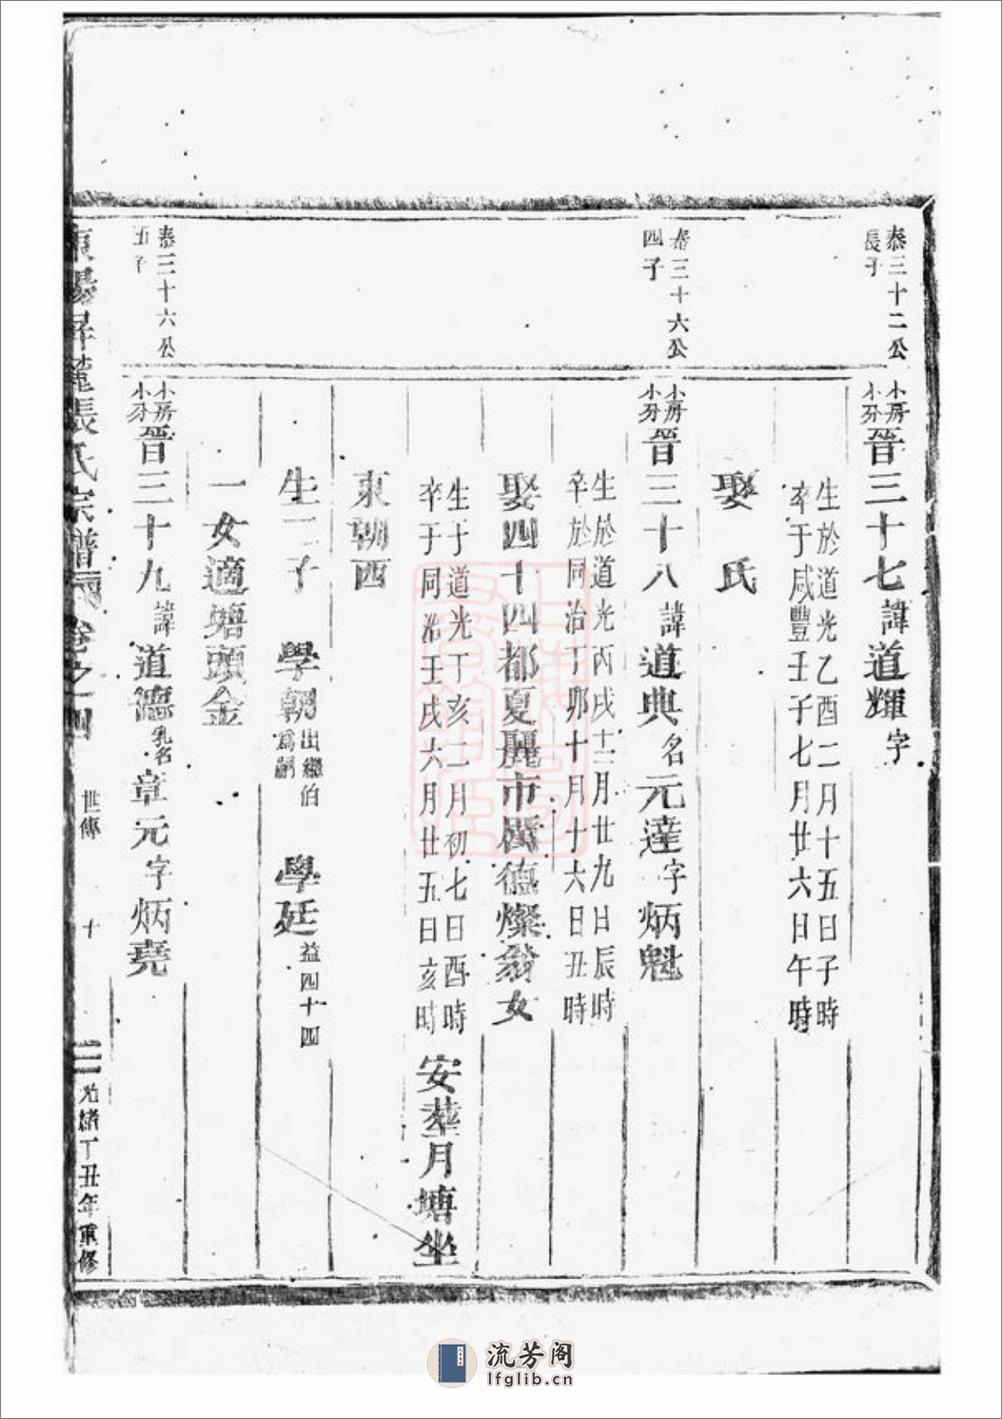 泰三十二公
長子
小房
小分
晉三十七諱道輝字
生於道光乙酉二月十五日子時
卒于咸豐壬子七月廿六日午時
娶　氏
泰三十六公
四子
小房
小分
晉三十八諱道典名元達字炳魁
生於道光丙戌十二月廿九日辰時
卒於同治丁卯十月十六日丑時
娶四十四都夏麗市 德燦翁女
生于道光丁亥二月初七日酉時
卒于同治壬戌六月廿五日亥時
安塟月塘坐
東朝西
生二子　學朝出繼伯爲嗣　學廷益四十四
一女適塘頭金
泰三十六公
五子
小房
小分
晉三十九諱道德乳名章元字炳堯
東陽 麓張氏宗譜 卷之四　世傳　十　光緒丁丑年重修
流芳阁
lfglib.cn